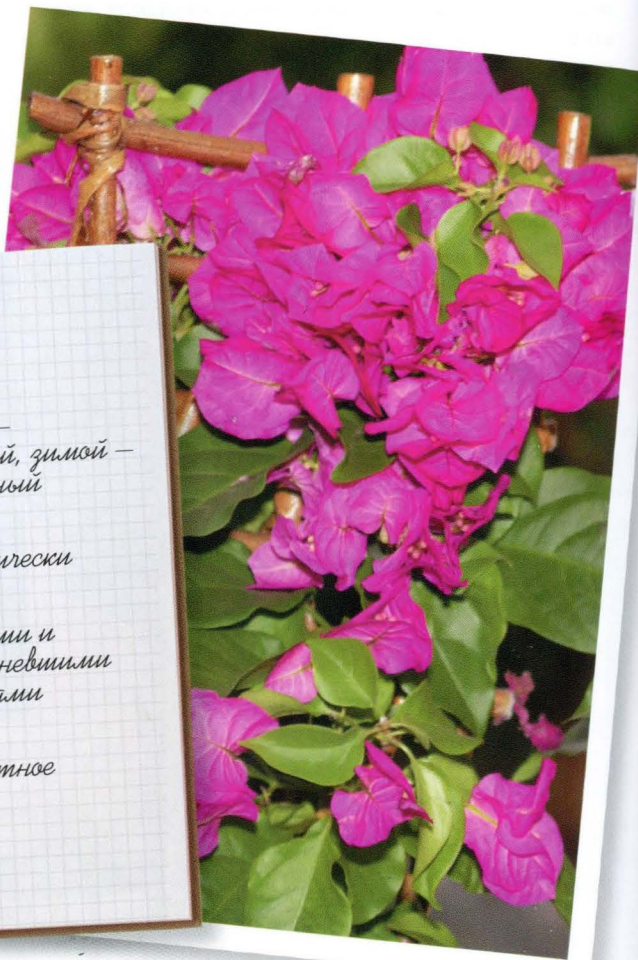 —
й, зимой —
ный
ически
ми и
невшими
ами
тное